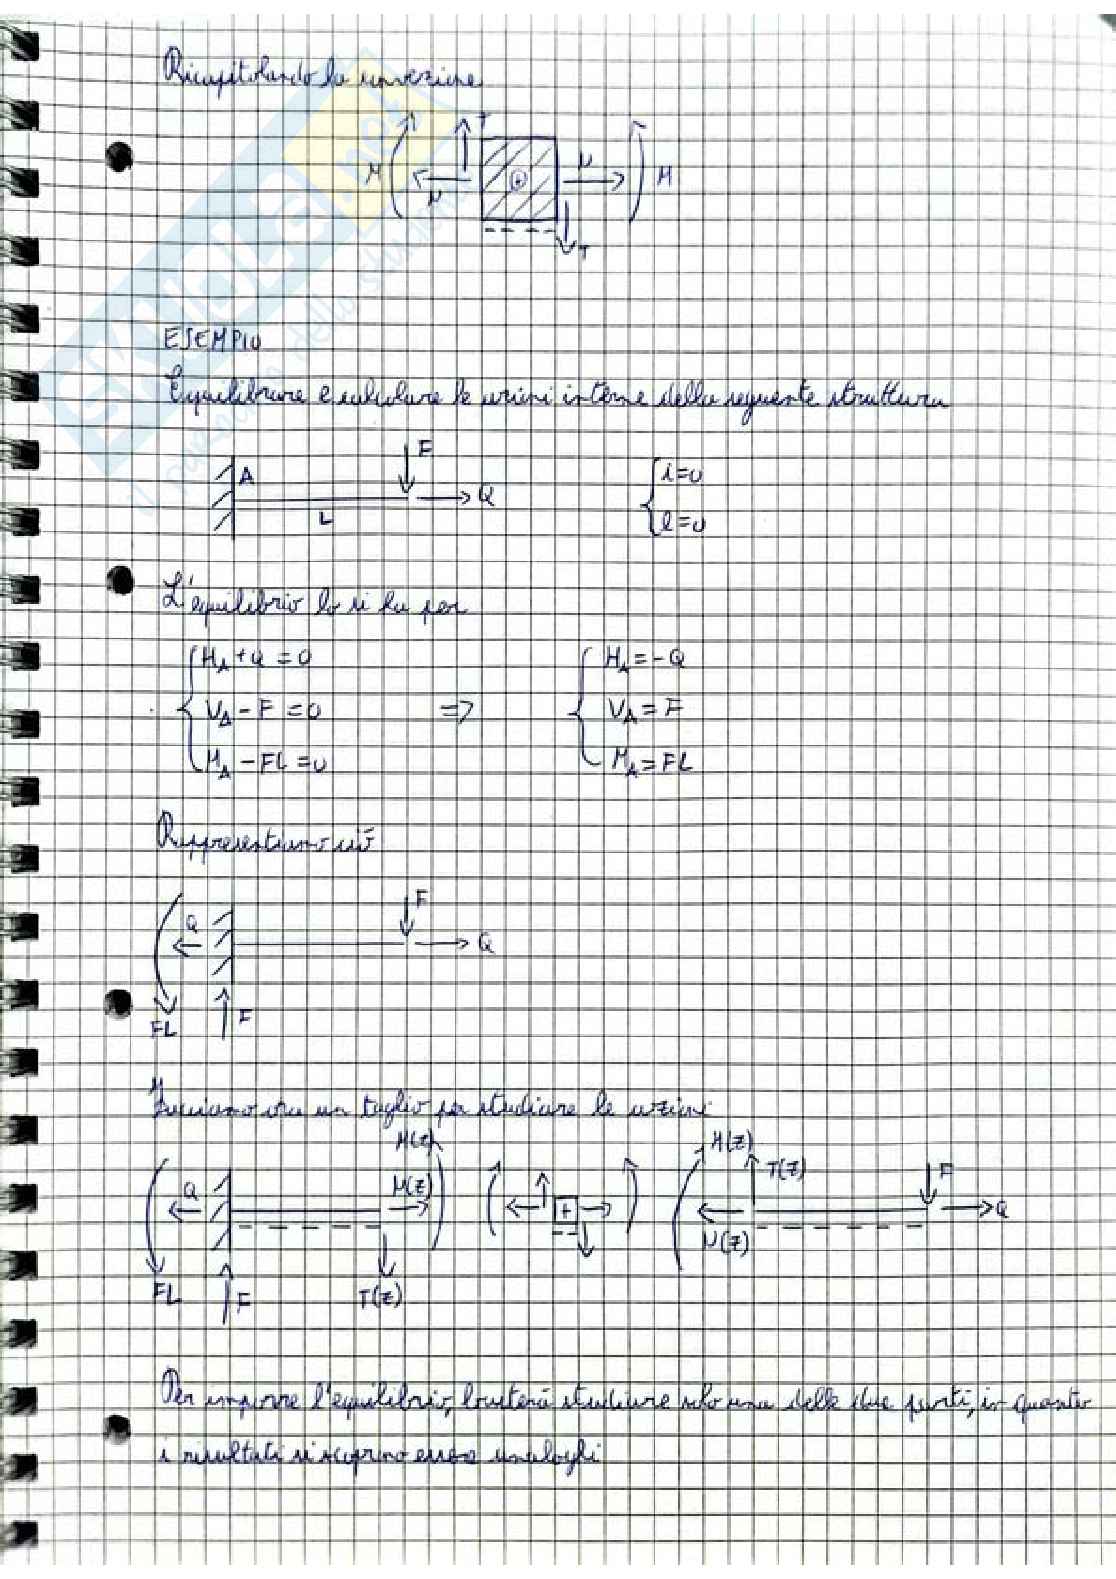 Ricapitolando la convenzione
T
M N N M
T
ESEMPIO
Equilibrare e calcolare le azioni interne della seguente struttura
A F Q L
i=0
l=0
L'equilibrio lo si ha per
H_A + Q = 0 H_A = -Q
V_A - F = 0 => V_A = F
M_A - FL = 0 M_A = FL
Rappresentiamo ciò
Q F Q
FL F
Facciamo ora un taglio per studiare le azioni
M(z) M(z)
Q N(z) + T(z) F Q
N(z)
FL F T(z)
Per imporre l'equilibrio, basterà studiare solo una delle due parti, in quanto
i risultati si scoprono essere analoghi